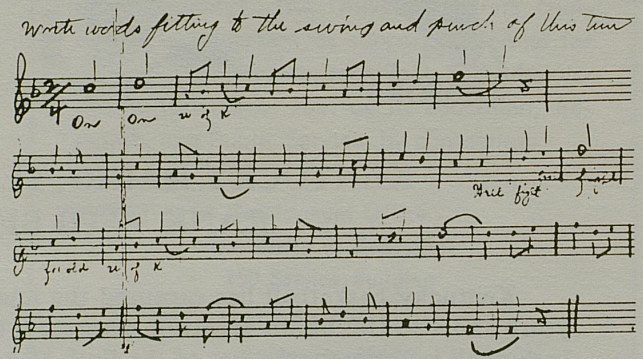 Write words fitting to the swing and punch of this tune
On On U of K
Frit figt
for old U of K